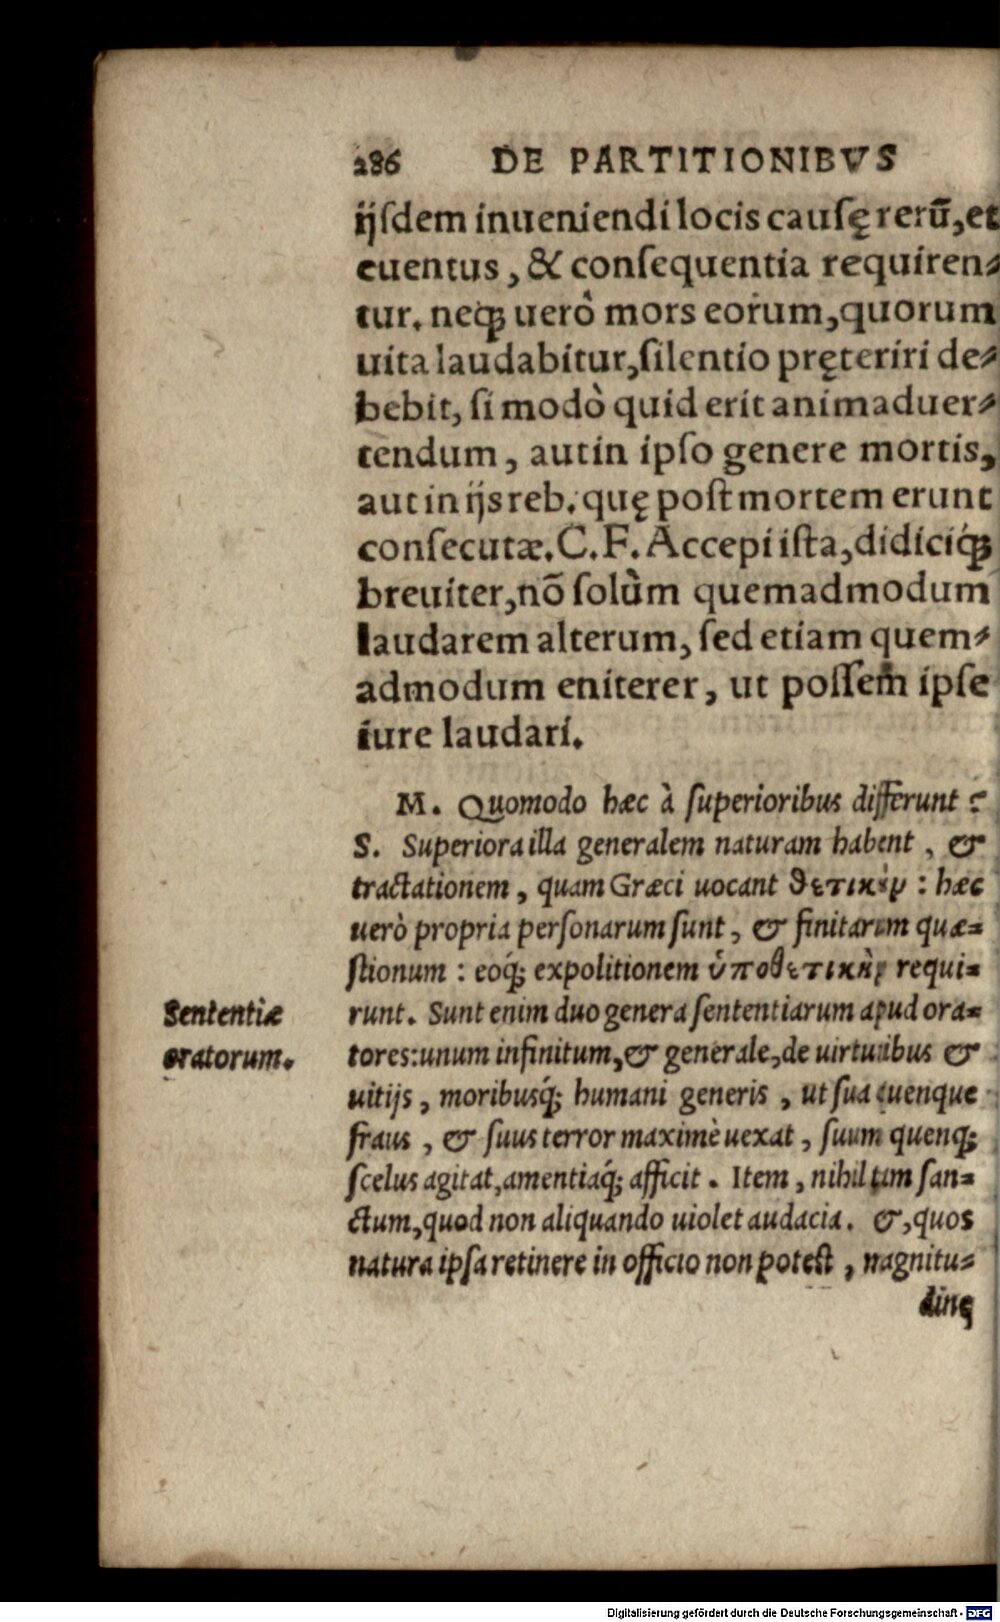 286 DE PARTITIONIBVS
ijſdem inueniendi locis cauſę rerū, et
euentus, & conſequentia requiren⸗
tur. neq; uerò mors eorum, quorum
uita laudabitur, ſilentio pręteriri de⸗
bebit, ſi modò quid erit animaduer⸗
tendum, aut in ipſo genere mortis,
aut in ijs reb. quę poſt mortem erunt
conſecutæ. C. F. Accepi iſta, didiciq́;
breuiter, nō ſolùm quemadmodum
laudarem alterum, ſed etiam quem⸗
admodum eniterer, ut poſſem ipſe
iure laudari.
M. Quomodo hæc à ſuperioribus differunt?
S. Superiora illa generalem naturam habent, &
tractationem, quam Græci uocant θετικὴν : hæc
uerò propria perſonarum ſunt, & finitarum quæ⸗
ſtionum : eoq́; expolitionem ὑποθετικὴν requi⸗
Sententiæ
oratorum.
runt. Sunt enim duo genera ſententiarum apud ora⸗
tores: unum infinitum, & generale, de uirtutibus &
uitijs, moribusq́; humani generis, ut ſua quenque
fraus, & ſuus terror maximè uexat, ſuum quenq;
ſcelus agitat, amentiaq́; afficit. Item, nihil tam ſan⸗
ctum, quod non aliquando uiolet audacia. &, quos
natura ipſa retinere in officio non poteſt, magnitu⸗
dine
Digitalisierung gefördert durch die Deutsche Forschungsgemeinschaft - DFG